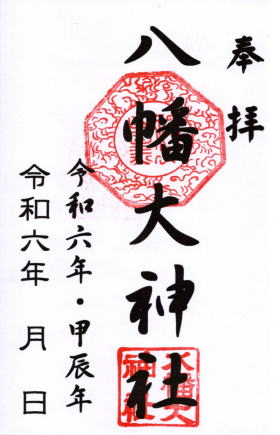 奉拝
八幡大神社
令和六年・甲辰年
令和六年 月 日
八幡大
神社